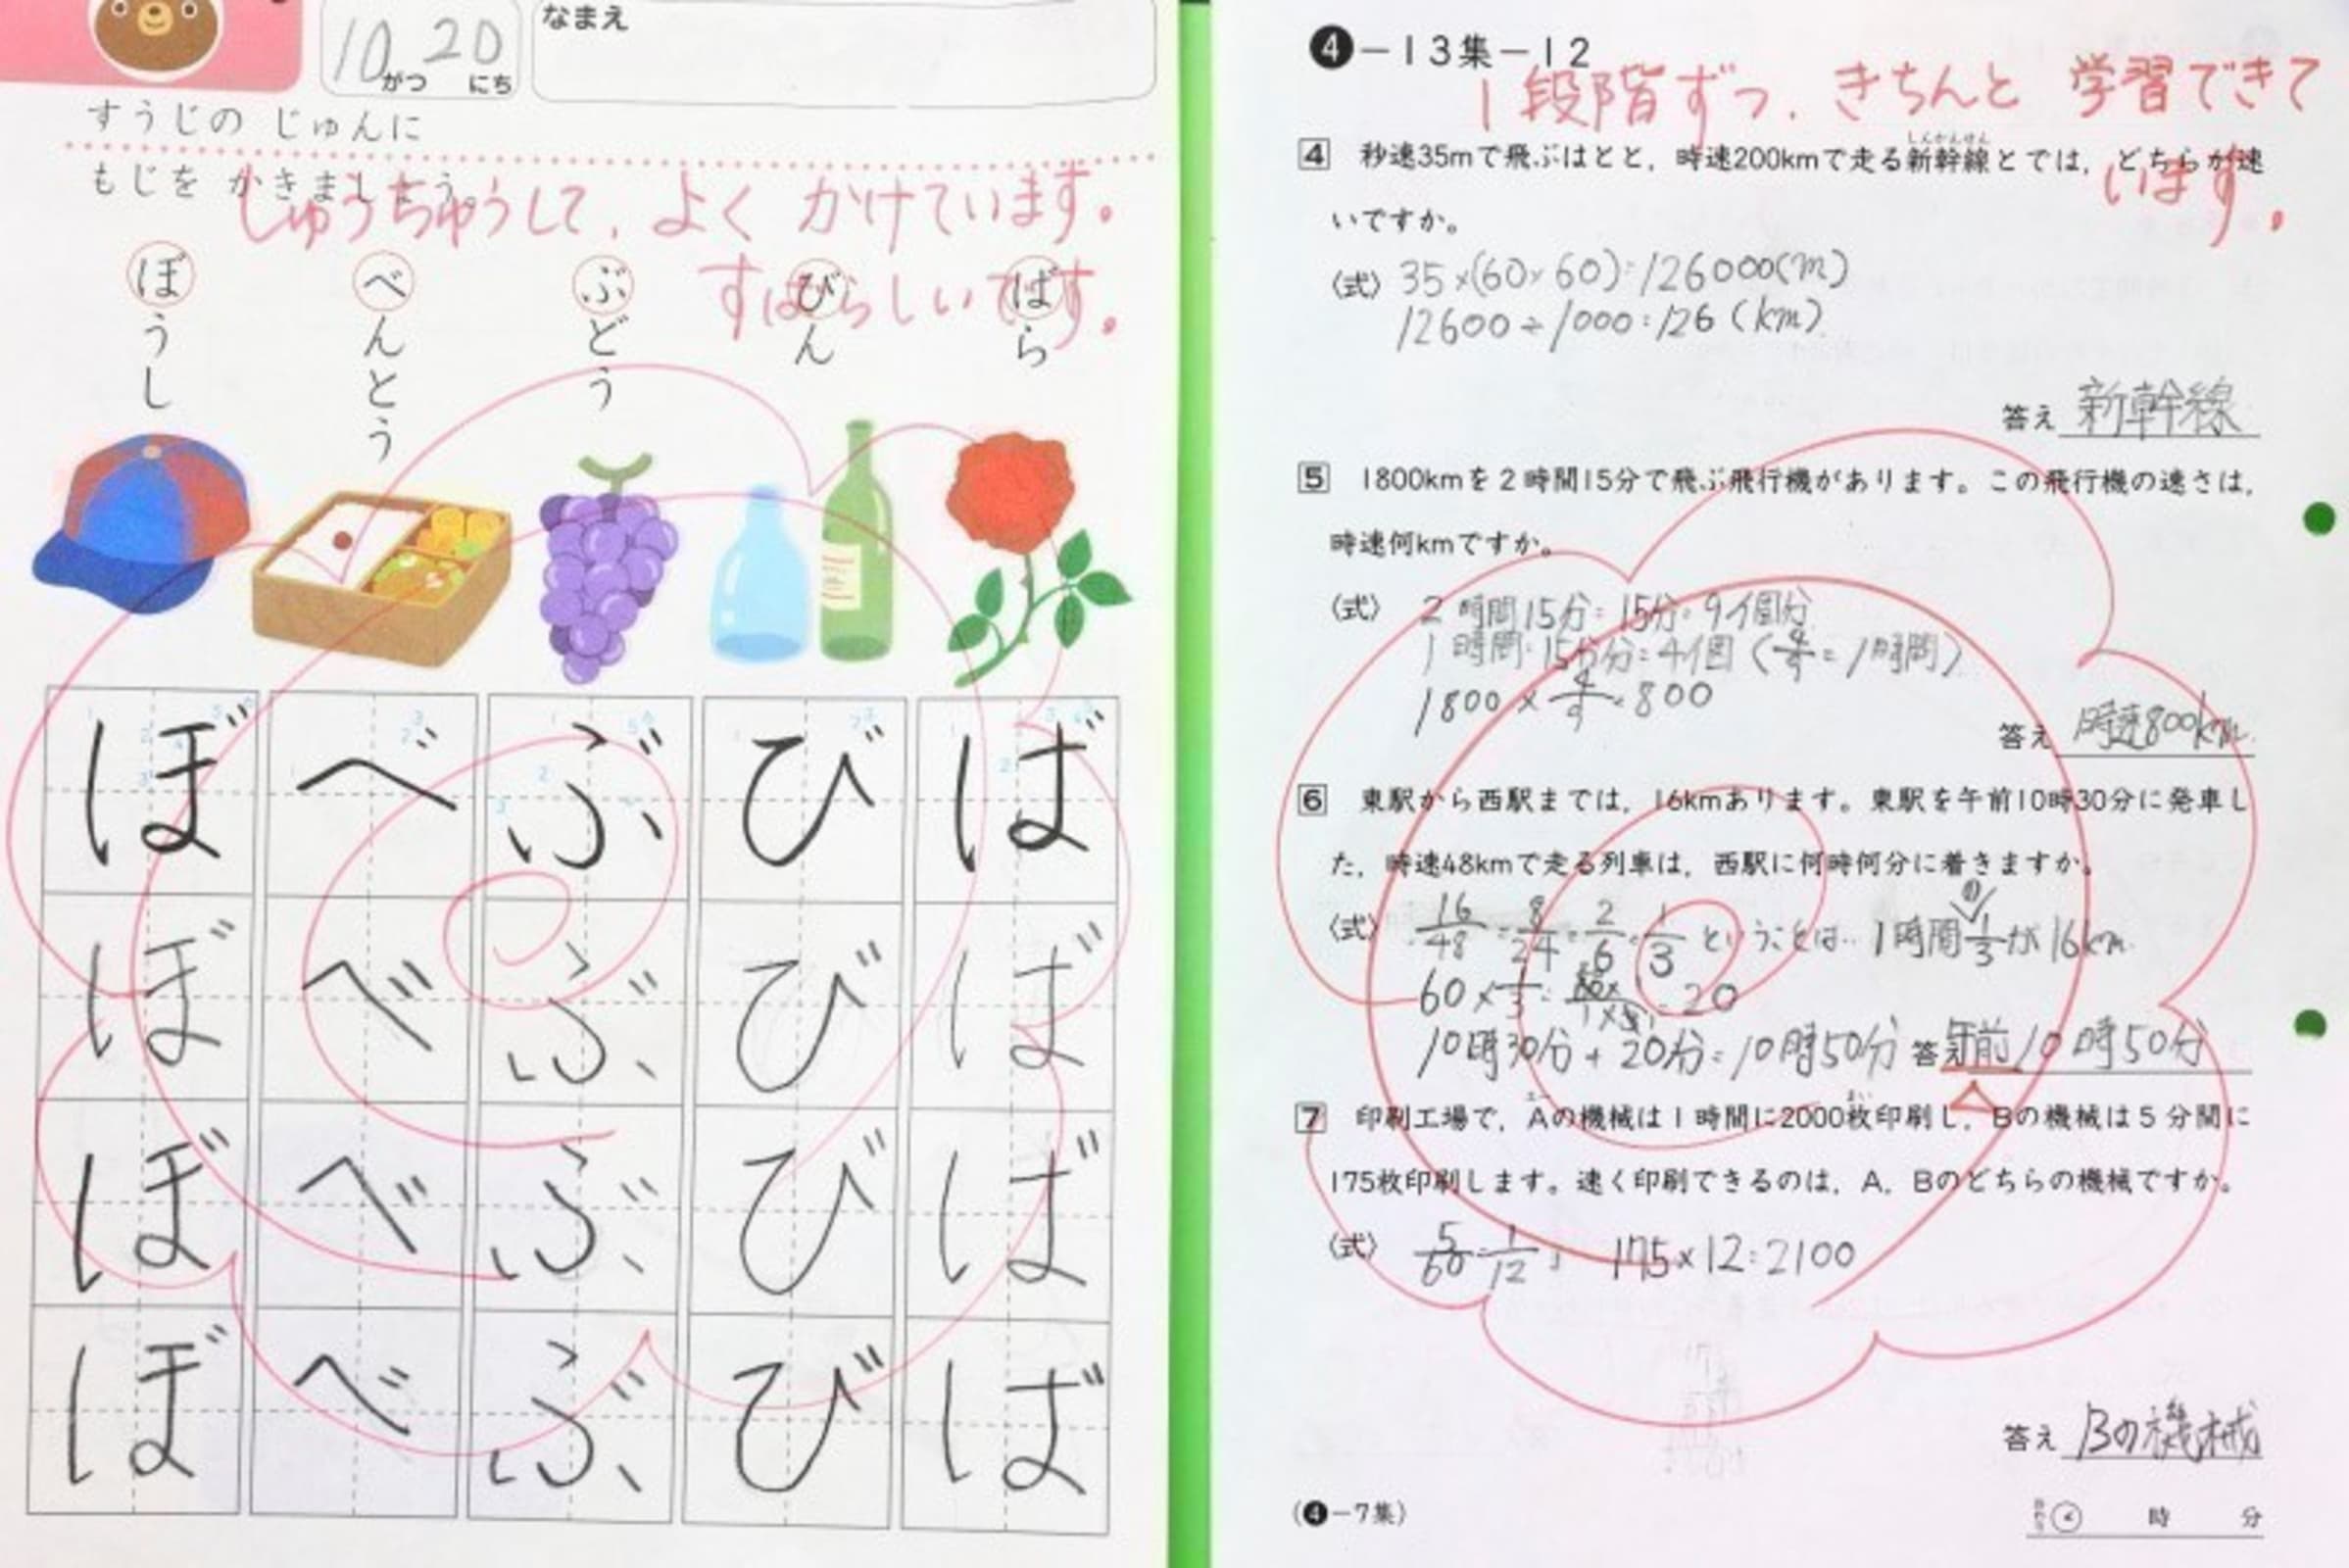 10がつ20にち
なまえ
すうじの じゅんに
もじを かきましょう。
しゅうちゅうして、よく かけています。
すばらしいです。
ばら
びん
ぶどう
べんとう
ぼうし
ば び ぶ べ ぼ
ば び ぶ べ ぼ
ば び ぶ べ ぼ
ば び ぶ べ ぼ
❹-13集-12
1段階ずつ、きちんと 学習できて
います。
4 秒速35mで飛ぶはとと,時速200kmで走る新幹線とでは,どちらが速
しんかんせん
いですか。
〈式〉 35×(60×60)=126000(m)
12600÷1000=126(km)
答え 新幹線
5 1800kmを2時間15分で飛ぶ飛行機があります。この飛行機の速さは,
時速何kmですか。
〈式〉 2時間15分=15分=9個分
1時間=15分分=4個(4/4=1時間)
1800×4/9=800
答え 時速800km
6 東駅から西駅までは,16kmあります。東駅を午前10時30分に発車し
た,時速48kmで走る列車は,西駅に何時何分に着きますか。
〈式〉 16/48=8/24=2/6=1/3 ということは… 1時間の1/3が16km
60×1/3= =20
10時30分+20分=10時50分 答え 午前10時50分
7 印刷工場で,Aの機械は1時間に2000枚印刷し,Bの機械は5分間に
エー まい
175枚印刷します。速く印刷できるのは,A,Bのどちらの機械ですか。
〈式〉 5/60=1/12 175×12=2100
答え Bの機械
(❹-7集)
時 分